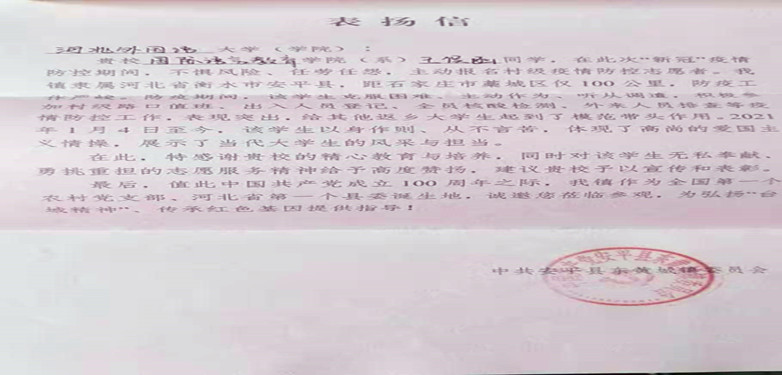 表扬信
河北外国语大学（学院）：
贵校国际语言教育学院（系）同学，在此次“新冠”疫情
防控期间，不惧风险、任劳任怨，主动报名村级疫情防控志愿者。我
镇隶属河北省衡水市安平县，距石家庄市藁城区仅100公里，防疫工
作严峻。防疫期间，该学生克服困难、主动作为、听从调遣，积极参
加村级路口值班、出入人员登记、全员核酸检测、外来人员检查等疫
情防控工作，表现突出，给其他返乡大学生起到了模范带头作用。2021
年1月4日至今，该学生以身作则、从不言苦，体现了高尚的爱国主
义情操，展示了当代大学生的风采与担当。
在此，特感谢贵校的精心教育与培养，同时对该学生无私奉献、
勇挑重担的志愿服务精神给予高度赞扬，建议贵校予以宣传和表彰。
最后，值此中国共产党成立100周年之际，我镇作为全国第一个
农村党支部、河北省第一个县委诞生地，诚邀您莅临参观，为弘扬“台
城精神”、传承红色基因提供指导！
中共安平县东黄城镇委员会